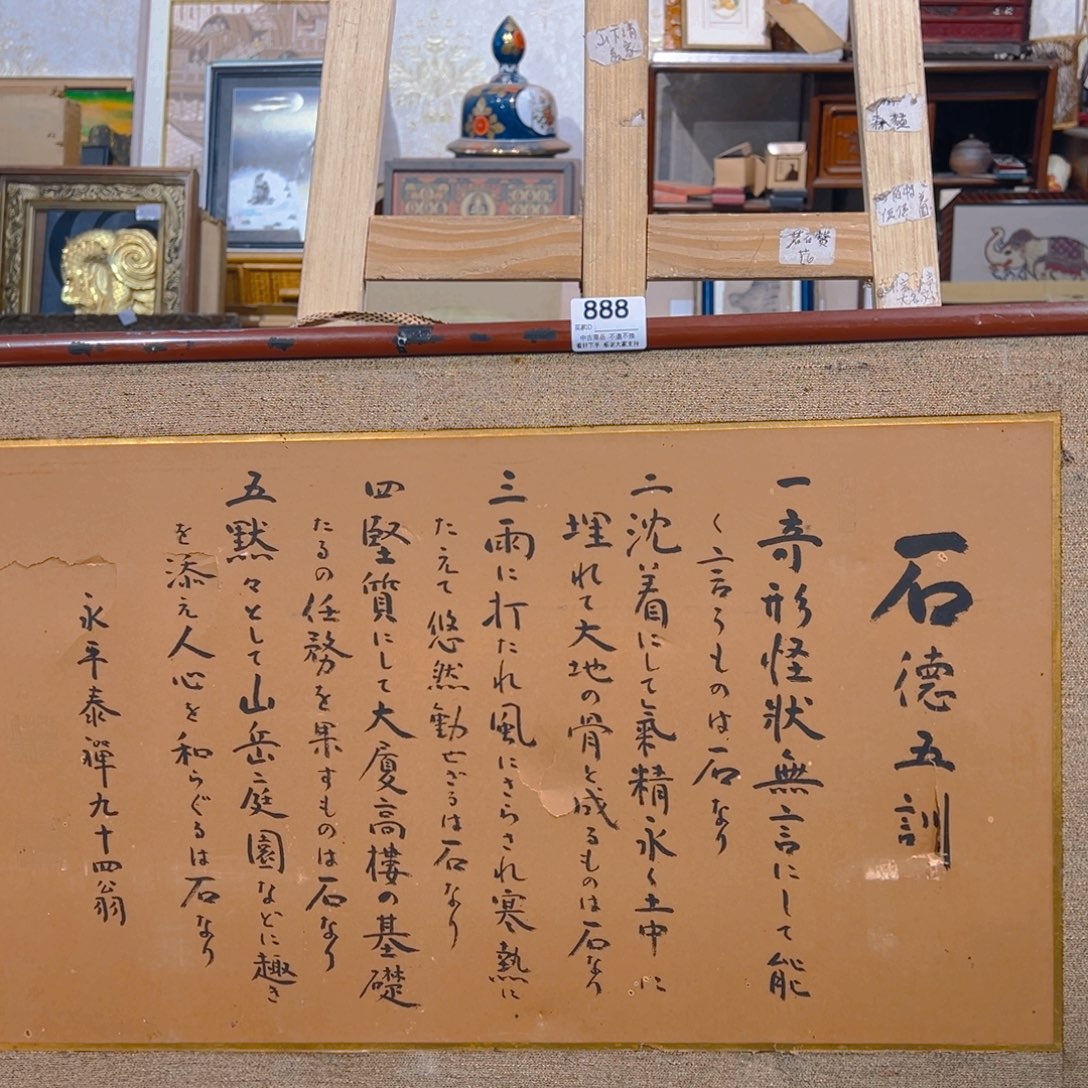 888
買家ID:
中古商品 不退不換
看好下手 感谢大家支持
石德五訓
一 奇形怪状無言にして能
く言うものは石なり
二 沈着にして氣精永く土中に
埋れて大地の骨と成るものは石なり
三 雨に打たれ風にさらされ寒熱に
たえて悠然動せざるは石なり
四 堅質にして大廈高樓の基礎
たるの任務を果すものは石なり
五 黙々として山岳庭園などに趣き
を添え人心を和らぐるは石なり
永平泰禅九十四翁